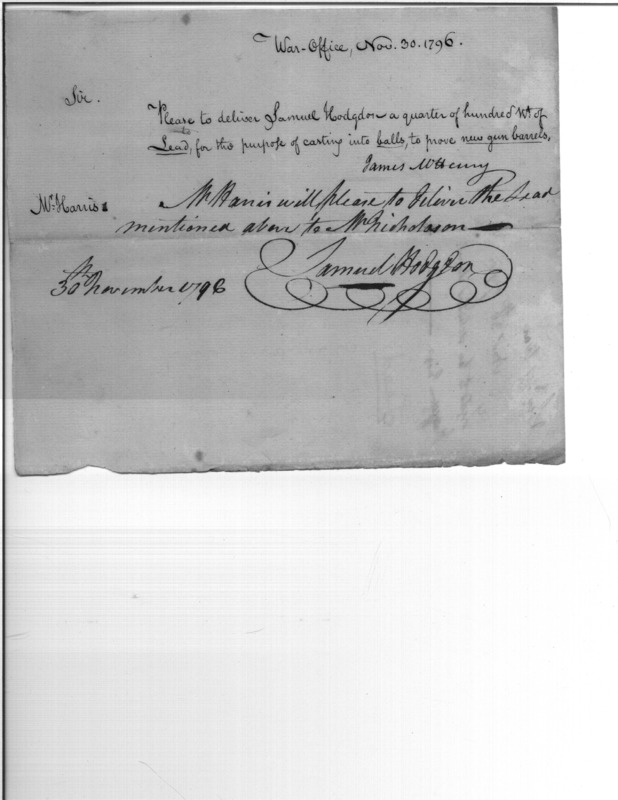 War-Office, Nov. 30. 1796.
Sir.
Please to deliver Samuel Hodgdon a quarter of hundred Wt. of
Lead, for the purpose of casting into balls, to prove new gun barrels.
James McHenry
Mr. Harris
Mr Harris will please to deliver the Lead
mentioned above to Mr Nicholson
Samuel Hodgdon
30th November 1796